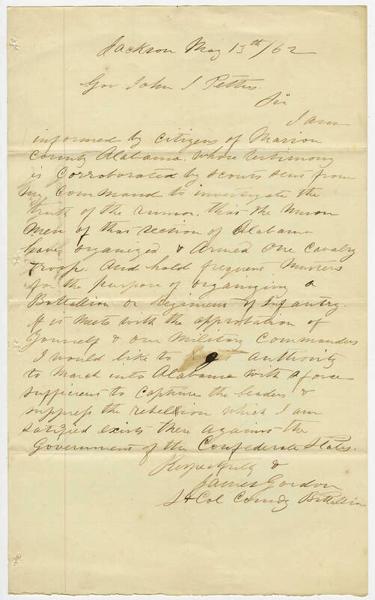 Jackson May 13th /62
Gov John J Pettus
Sir
I am
informed by citizens of Marion
County Alabama, whose testimony
is corroborated by scouts sent from
my command to investigate the
truth of the rumor, that the Union
Men of that section of Alabama
have organized & armed one cavalry
troop and hold frequent musters
for the purpose of organizing a
Battalion or Regiment of Infantry.
If it meets with the approbation of
yourself & our Military Commanders
I would like to authority
to march into Alabama with a force
sufficient to capture the leaders &
suppress the rebellion which I am
satisfied exists there against the
Government of the Confederate States.
Respectfully &
James Gordon
Lt Col Comdg Battalion